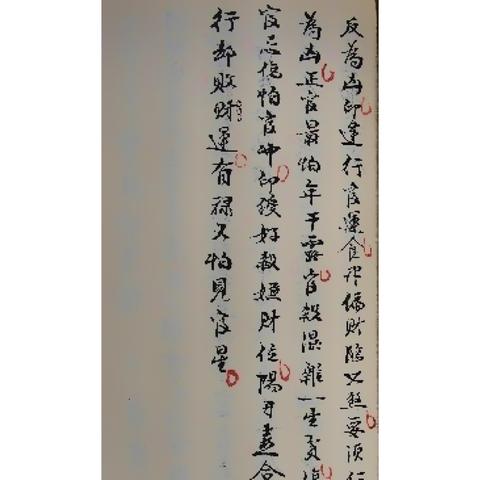 反為凶印逢行官運食神偏財臨又煞要須行
為凶正官最怕年干露官殺混雜一生貧
官忌傷怕官冲印綬好殺嫌財位陽刃喜合
行却敗財運有祿不怕見官星